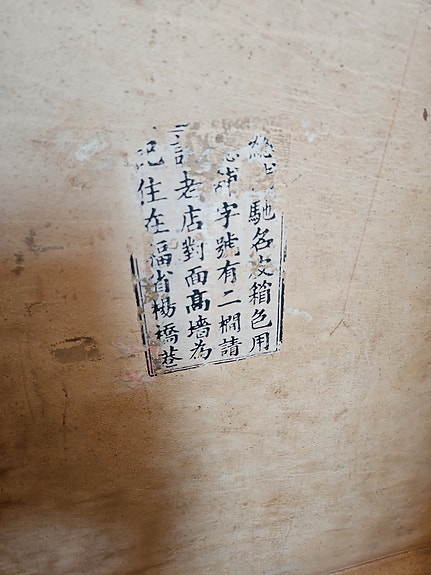 總馳名皮箱色用
字號有二櫚請
認老店對面高墻為
記住在福省楊橋巷